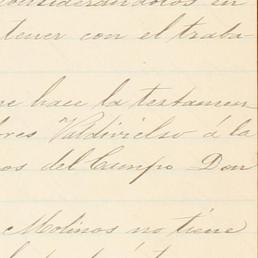 considerándolos en
tener con el traba
que hace la testamen
ores Valdivielso á la
os del Campo Don
Molinos no tiene